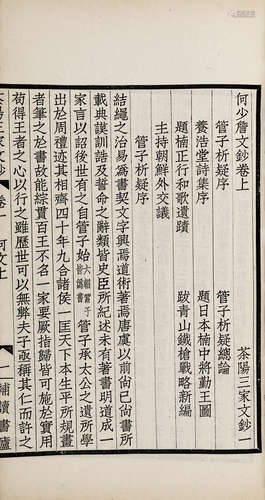 何少詹文鈔卷上　茶陽三家文鈔一
管子析疑序　管子析疑總論
養浩堂詩集序　題日本楠中將勤王圖
題楠正行和歌遺蹟　跋青山鐵槍戰略新編
主持朝鮮外交議
管子析疑序
結繩之治易爲書契文字興焉道術著焉唐虞以前尙已尙所
載典謨訓誥及誓命之辭類皆史臣所紀述未有著書明道成一
家言以詔後世者有之自管子始六韜鬻子皆譌書管子承太公之遺所學
出於周禮迹其相齊四十年九合諸侯一匡天下本生平所規畫
者筆之於書故能綜貫百王不名一家要厥指歸皆可施於實用
苟得王者之心以行之雖歷世可以無弊夫子亟稱其仁而許之
茶陽三家文鈔　卷一　何文上　一　補讀書廬